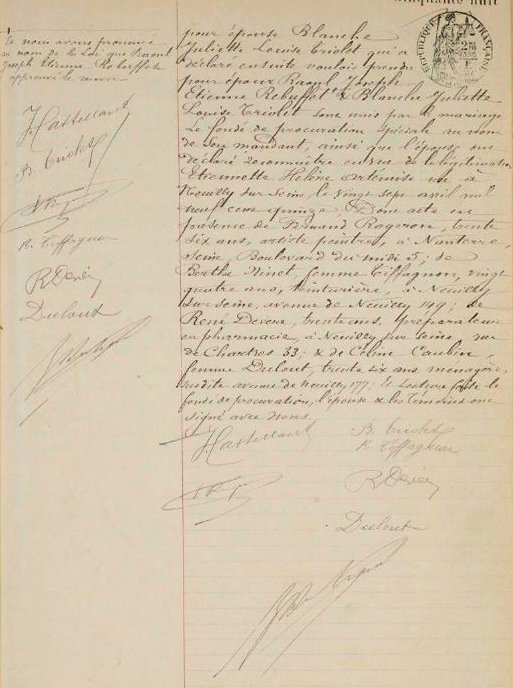 cinquante huit
RÉPUBLIQUE FRANÇAISE
Et nous avons prononcé
au nom de la Loi que Raoul
Joseph Etienne Rebuffet
approuvé le renvoi
J. Castellant
B. Criolet
B. Tiffagnon
R Devere
Dulout
pour épouse Blanche
Juliette Louise Criolet qui a
déclaré ensuite vouloir prendre
pour époux Raoul Joseph
Etienne Rebuffet & Blanche Juliette
Louise Criolet sont unis par le mariage
Le fondé de procuration spéciale au nom
de son mandant, ainsi que l'épouse ont
déclaré reconnaître en vue de la légitimation
Etiennette Hélène Artémise née à
Neuilly sur Seine, le vingt sept avril mil
neuf cent quinze. Dont acte en
présence de Rogeron, trente
six ans, artiste peintre, à Nanterre,
Seine, Boulevard du midi 5; de
Berthe Ninet, femme Tiffagnon, vingt
quatre ans, teinturière, à Neuilly
sur-Seine, avenue de Neuilly 179; de
René Devere, trente ans, préparateur
en pharmacie, à Neuilly sur Seine, rue
de Chartres 33; & de Céline
femme Dulout, trente six ans, ménagère,
susdite avenue de Neuilly 177; Et Lecture faite le
fondé de procuration, l'épouse & les témoins ont
signé avec nous.
J. Castellant B. Criolet
B. Tiffagnon
R Devere
Dulout